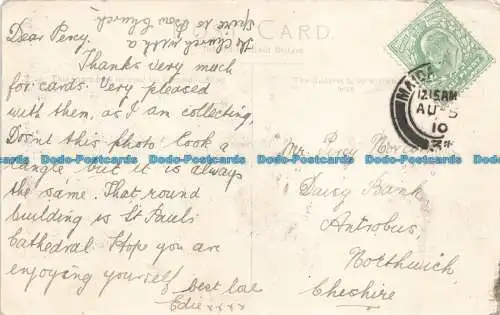 Dear Percy.
Thanks very much
for cards. Very pleased
with them, as I am collecting.
Doesn't this photo look a
tangle but it is always
the same. That round
building is St Pauls
Cathedral. Hope you are
enjoying yourself
best love
Edie xxxx
The Church with a
spire is Bow Church
POST CARD
Mr. Percy
Daisy Bank,
Antrobus,
Northwich
Cheshire
MAIDA
12.15AM
AU 5
10
Dodo-Postcards Dodo-Postcards Dodo-Postcards Dodo-Postcards